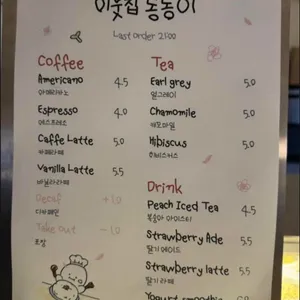 이웃집 동동이
Last order 21:00
Coffee
Americano 4.5
아메리카노
Espresso 4.0
에스프레소
Caffe Latte 5.0
카페라떼
Vanilla Latte 5.5
바닐라라떼
Decaf +1.0
디카페인
Take out -1.0
포장
Tea
Earl grey 5.0
얼그레이
Chamomile 5.0
캐모마일
Hibiscus 5.0
히비스커스
Drink
Peach Iced Tea 4.5
복숭아 아이스티
Strawberry Ade 5.5
딸기 에이드
Strawberry latte 5.5
딸기 라떼
Yogurt smoothie